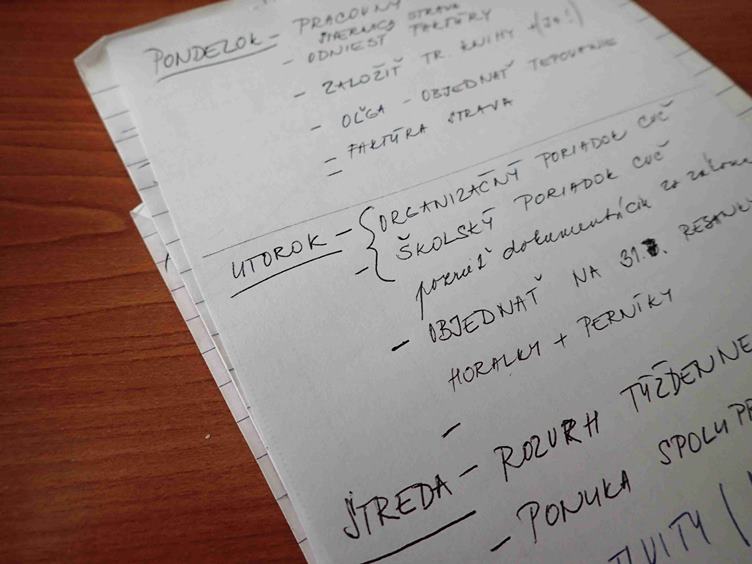 PONDELOK - PRACOVNÝ
STRAVA
- ODNIESŤ FAKTÚRY
- ZALOŽIŤ TR. KNIHY
- OĽGA - OBJEDNAŤ TEPOVANIE
- FAKTÚRA STRAVA
UTOROK - { ORGANIZAČNÝ PORIADOK CUČ
- ŠKOLSKÝ PORIADOK CUČ
dokumentáciu zo zákona
- OBJEDNAŤ NA 31. REZANKY
HORALKY + PERNÍKY
-
STREDA - ROZVRH TÝŽDENNE
- PONUKA SPOLUPR